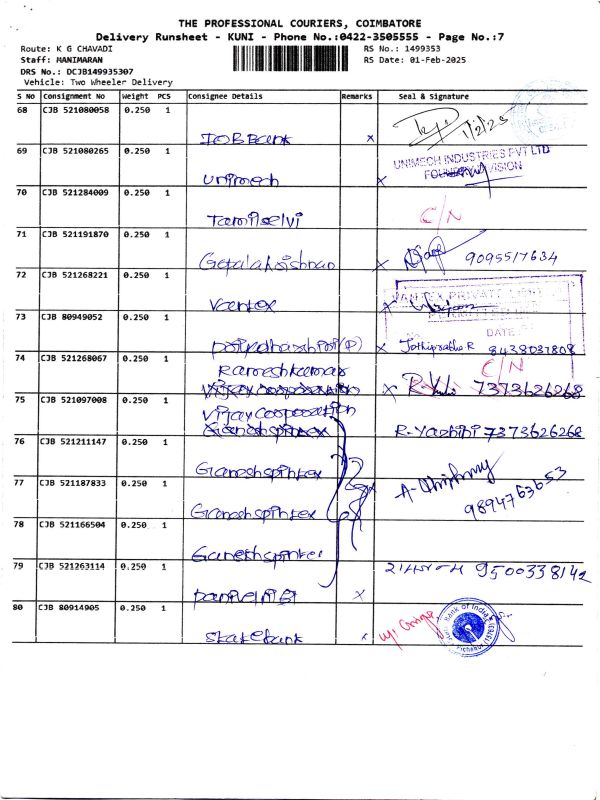 THE PROFESSIONAL COURIERS, COIMBATORE
Delivery Runsheet - KUNI - Phone No.:0422-3505555 - Page No.:7
Route: K G CHAVADI RS No.: 1499353
Staff: MANIMARAN RS Date: 01-Feb-2025
DRS No.: DCJB149935307
Vehicle: Two Wheeler Delivery
S No Consignment No Weight PCS Consignee Details Remarks Seal & Signature
68 CJB 521080058 0.250 1
IOB Bank x 1/2/25
69 CJB 521080265 0.250 1
UNIMECH INDUSTRIES PVT LTD
Unimech x
70 CJB 521284009 0.250 1
Tamilselvi C/N
71 CJB 521191870 0.250 1
Gopalakrishnan x 9095517634
72 CJB 521268221 0.250 1
Vantex x
73 CJB 80949052 0.250 1
DATE
x Jothipratha.R 8438037808
74 CJB 521268067 0.250 1
Rameshkumar C/N
x 7373626268
75 CJB 521097008 0.250 1
Vijay cooperation
R. Yazhini 7373626268
76 CJB 521211147 0.250 1
Ganeshspintex
77 CJB 521187833 0.250 1
9894763653
Ganeshspintex
78 CJB 521166504 0.250 1
Ganeshspintex
79 CJB 521263114 0.250 1
9500338142
x
80 CJB 80914905 0.250 1
State Bank of India
Statebank x